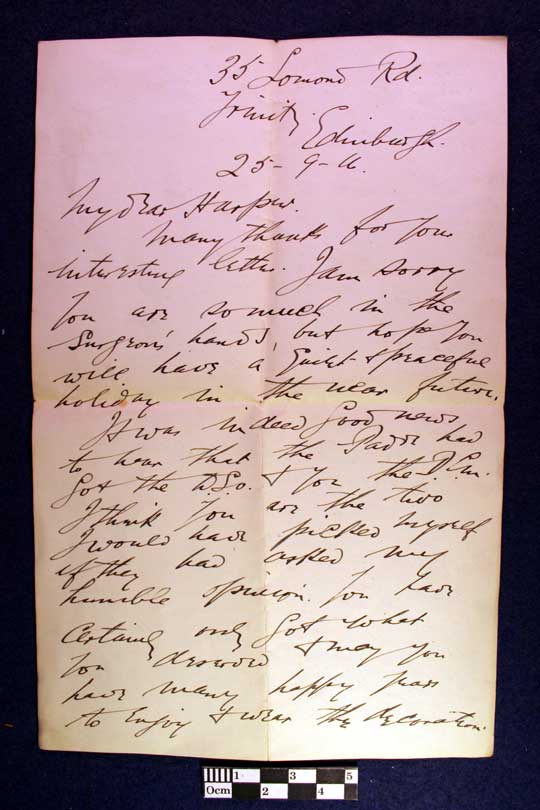 35 Lomond Rd.
Trinity.
Edinburgh.
25-9-16.
My dear Harper.
Many thanks for your
interesting letter. I am sorry
you are so much in the
Surgeons hands, but hope you
will have a quiet & peaceful
holiday in the near future.
It was indeed good news
to hear that the Padre had
got the D.S.O. & you the D.C.M.
I think you are the two
I would have picked myself
if they had asked my
humble opinion. You have
certainly only got what
you deserved & may you
have many happy years
to enjoy & wear the decoration.
0cm 1 2 3 4 5